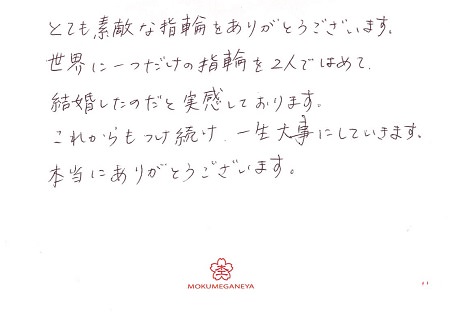 とても素敵な指輪をありがとうございます。
世界に一つだけの指輪を2人ではめて、
結婚したのだと実感しております。
これからもつけ続け、一生大事にしていきます。
本当にありがとうございます。
MOKUMEGANEYA